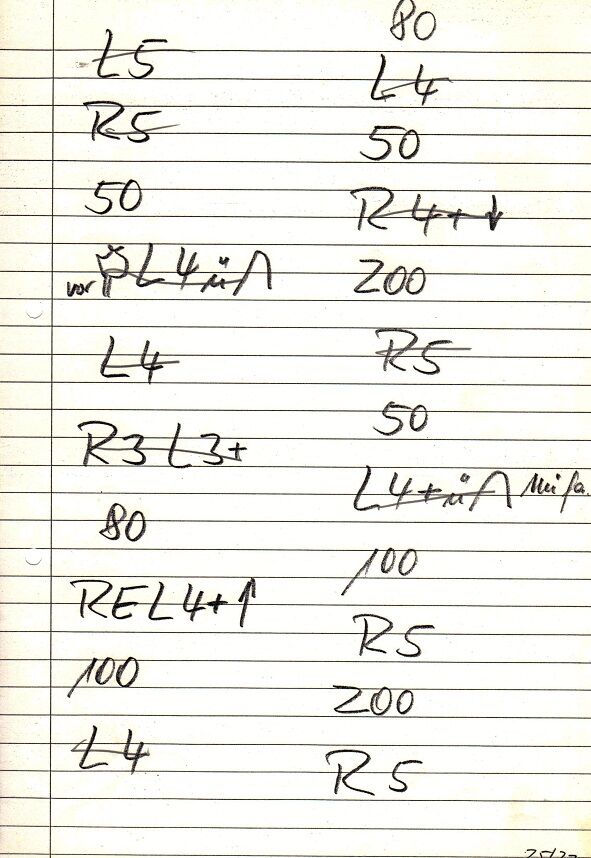 L5
R5
50
vor L4 ü
L4
R3 L3+
80
REL4+↑
100
L4
80
L4
50
R4++
200
R5
50
L4+ü
100
R5
200
R5